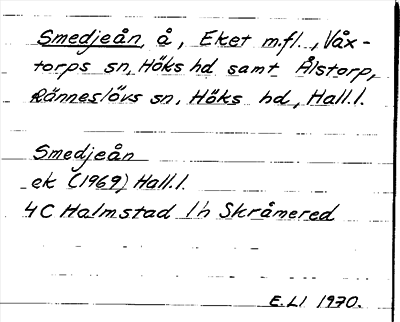 Smedjeån, å, Eket m.fl., Våx-
torps sn, Höks hd samt Ålstorp,
Ränneslövs sn, Höks hd, Hall.l.
Smedjeån
ek (1969) Hall.l.
4C Halmstad 1h Skråmered
E.LI 1970.